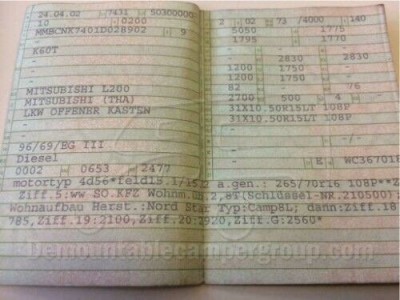 24.04.02 7431 50300000
10 0200
MMBCNK7401D028902 9
K60T
MITSUBISHI L200
MITSUBISHI (THA)
LKW OFFENER KASTEN
96/69/EG III
Diesel
0002 0653 2477
2 02 73 /4000 140
5050 1775
1795 1770
- 2830 2830
1200 1750 -
1200 1750 -
82 76
2700 500 4 -
31X10.50R15LT 108P
31X10.50R15LT 108P
E WC36701
motortyp 4d56*feld15.1/15.2 a.gen.: 265/70r16 108P**Z
Ziff.5:ww SO.KFZ Wohnm.ü.2,8T(Schlüssel-NR.210500);
Wohnaufbau Herst.:Nord Star Typ:Camp8L; dann:Ziff.18
785,Ziff.19:2100,Ziff.20:2920,Ziff.G:2560*
Demountablecampergroup.com